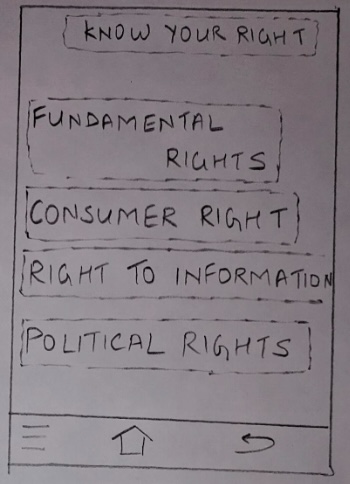 KNOW YOUR RIGHT
FUNDAMENTAL
RIGHTS
CONSUMER RIGHT
RIGHT TO INFORMATION
POLITICAL RIGHTS